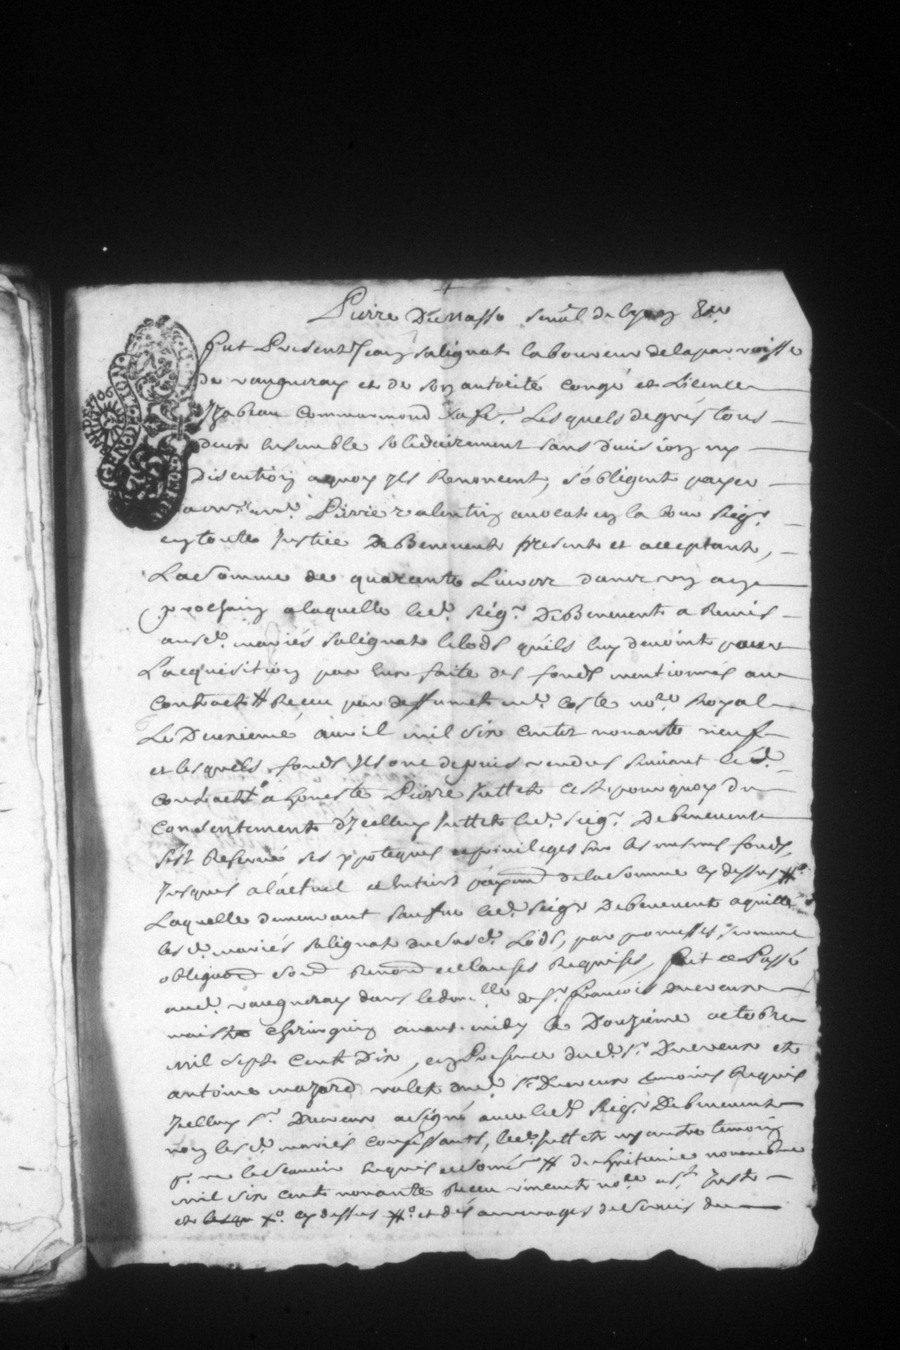 Pierre Dumasso senal de lyon &a
Fut Present Jean salignat laboureur de la parroisse
de vaugneray et de son autorité congé et Licence
Yzabeau Commarmond sa fe. Lesquels de grés tous
deux ensemble solidairement sans division ny
discution a quoy ils Renoncent, s'obligent payer
a Pierre valentin avocat en la Cour Seigr.
en toute Justice De Benevent present et acceptant,
La somme de quarante Livres dans un an
prochain a laquelle led. Seigr. De Benevent a Remis
ausd. mariés salignat le lods qu'ils luy devoint pour
L'acquisition par eux faite des fonds mentionnés au
Contract # Receu par deffunct me. Coste nore. Royal
Le Deuxieme avril mil six cents nonante neuf
et lesquels fonds ils ont depuis vendus suivant led.
Contract a honeste Pierre Juttet c'est pourquoy du
Consentement d'Icelluy Juttet led. seigr. De benevent
s'est Reservé ses ypoteques et privileges sur les mesmes fonds,
Jusques a l'actuel et entier payemt. de la somme cy dessus #.
Laquelle demeurant led. Seigr. De benevent a quitté
les d. mariés salignat dususd. Lods, par promesses, comme
obligaon. Renon. et clauses Requises, fait et Passé
aud. vaugneray dans le domlle de sr. françois Duvivure
maistre chirurgien avant midy le Douzieme octobre
mil sept Cent Dix, en Presence dud. sr. et
antoine mazard valet dud. sr. temoins Requis
Icelluy sr. a signé avec led. Seigr. De benevent
non les d. mariés Confessants, led. Juttet ny autre temoin
pr. ne le scavoir Requis et sommés # du huitieme novembre
mil six cent nonante Receu vincent nore. Juste
et lesqu cy dessus #. et des arrerages de servis du